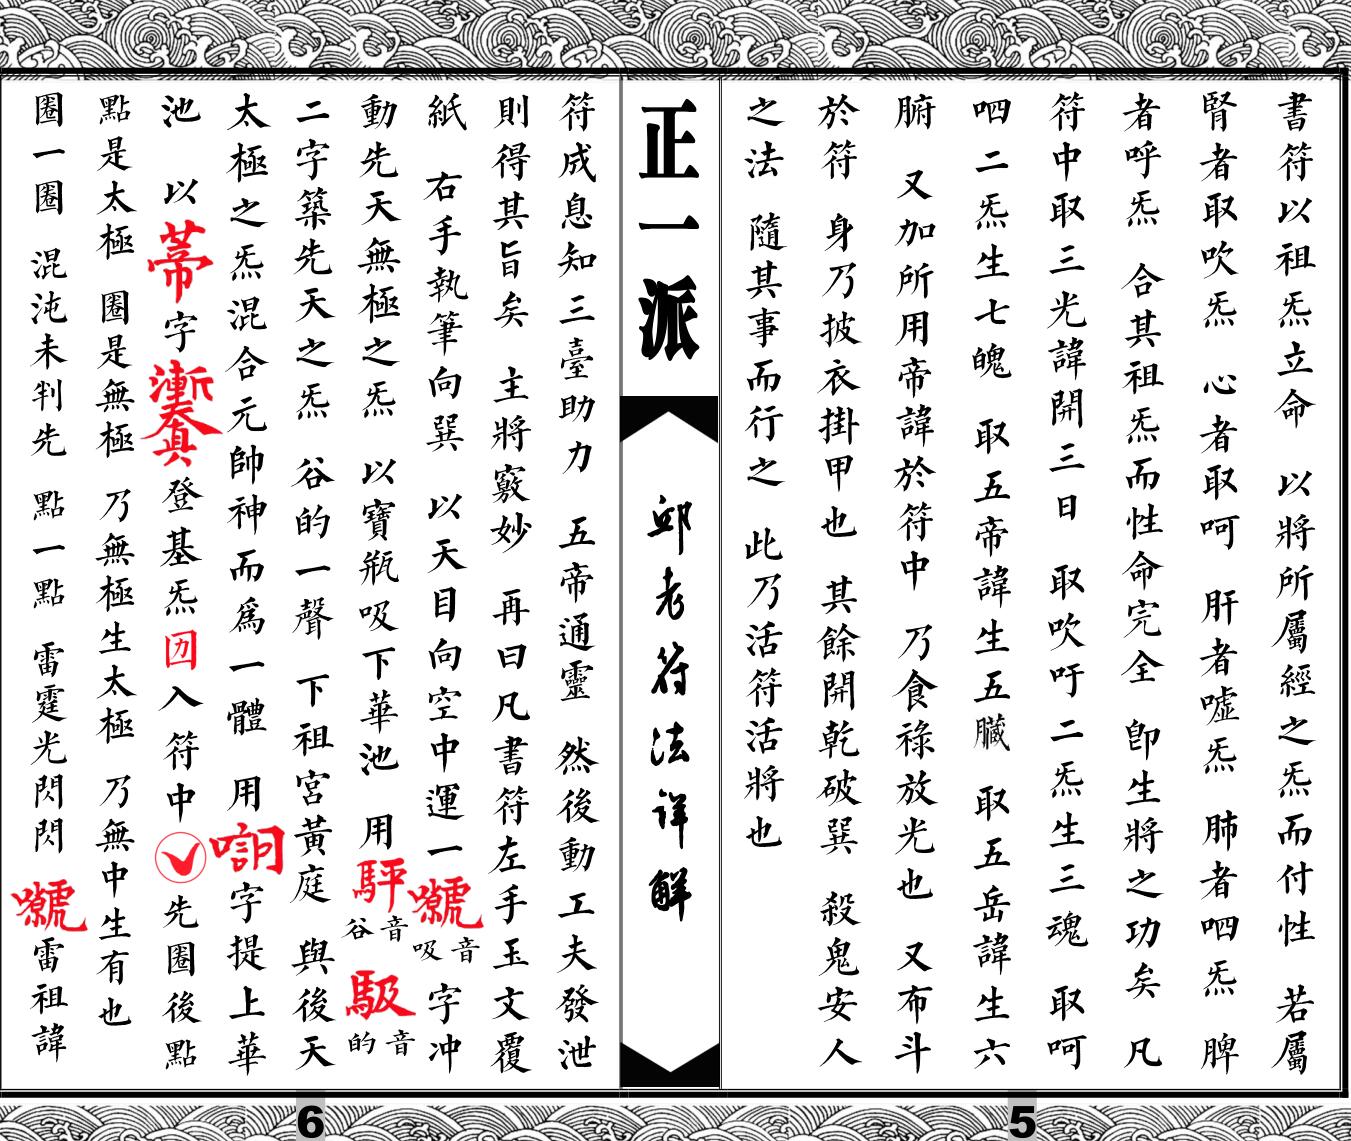 書符以祖炁立命　以將所屬經之炁而付性　若屬
腎者取吹炁　心者取呵　肝者噓炁　肺者呬炁　脾
者呼炁　合其祖炁而性命完全　卽生將之功矣　凡
符中取三光諱開三日　取吹吁二炁生三魂　取呵
呬二炁生七魄　取五帝諱生五臟　取五岳諱生六
腑　又加所用帝諱於符中　乃食祿放光也　又布斗
於符　身乃披衣掛甲也　其餘開乾破巽　殺鬼安人
之法　隨其事而行之　此乃活符活將也
正一派
邱老符法詳解
符成息知三臺助力　五帝通靈　然後動工夫發泄
則得其旨矣　主將竅妙　再曰凡書符左手玉文覆
紙　右手執筆向巽　以天目向空中運一音吸字冲
動先天無極之炁　以寶瓶吸下華池　用音谷音的
二字築先天之炁　谷的一聲　下祖宮黃庭　與後天
太極之炁混合元帥神而爲一體　用字提上華
池　以字登基炁入符中先圈後點
點是太極　圈是無極　乃無極生太極　乃無中生有也
圈一圈　混沌未判先　點一點　雷霆光閃閃　雷祖諱
5
6